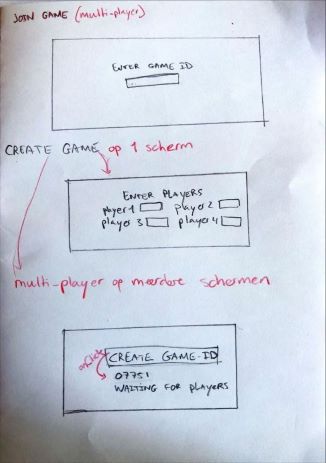 JOIN GAME (multi-player)
ENTER GAME ID
CREATE GAME op 1 scherm
ENTER PLAYERS
player 1 player 2
player 3 player 4
multi-player op meerdere schermen
onclick CREATE GAME-ID
07751
WAITING FOR PLAYERS